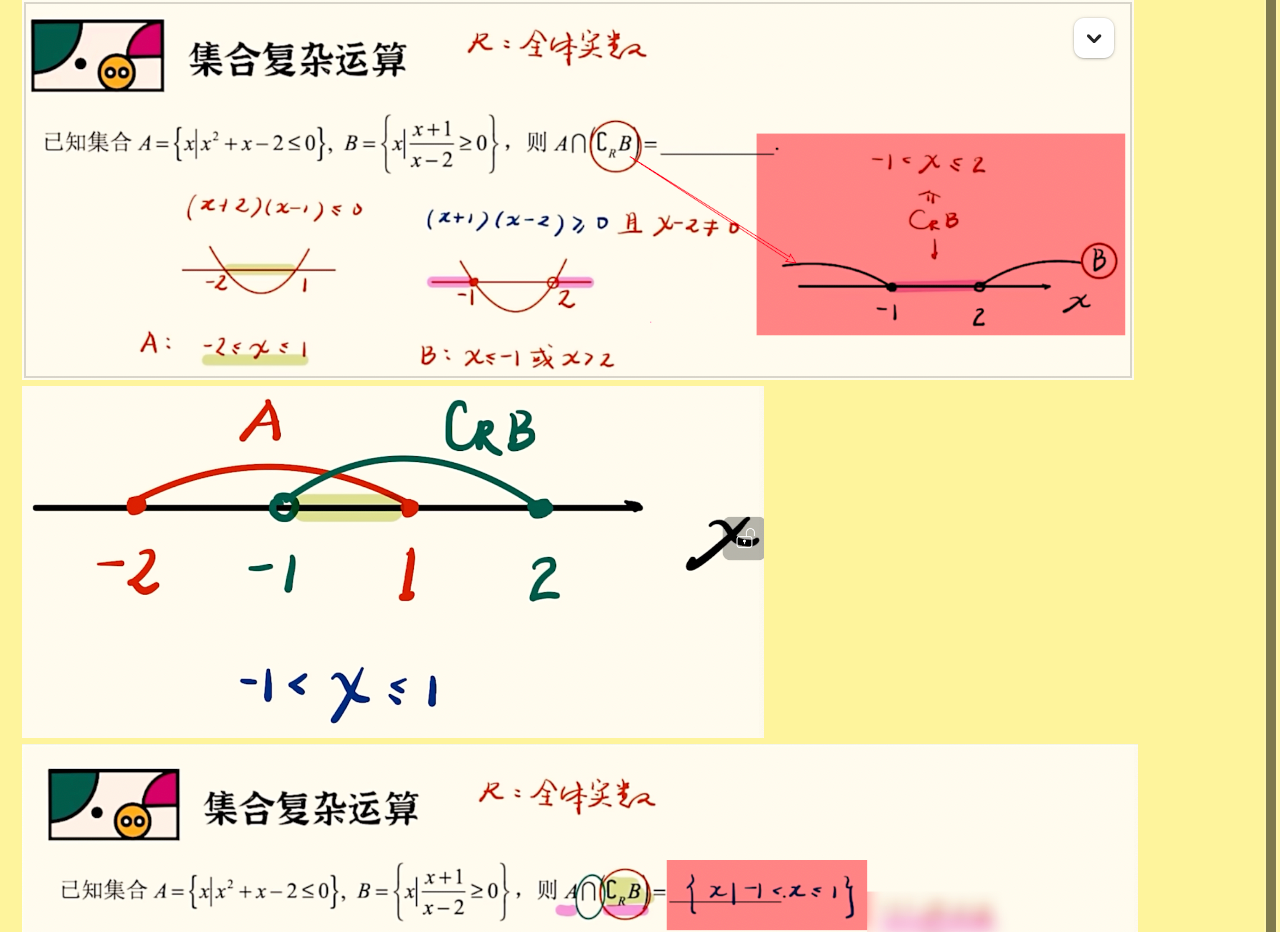 集合复杂运算 R：全体实数
已知集合 A={x|x²+x−2≤0}, B={x|(x+1)/(x−2)≥0}，则 A∩(∁_R B)=________.
(x+2)(x-1)≤0
(x+1)(x-2)≥0 且 x-2≠0
-2 1
-1 2
A： -2≤x≤1
B：x≤-1 或 x>2
-1<x≤2
C_R B
B
-1 2 x
A C_R B
-2 -1 1 2 x
-1<x≤1
集合复杂运算 R：全体实数
已知集合 A={x|x²+x−2≤0}, B={x|(x+1)/(x−2)≥0}，则 A∩(∁_R B)= {x|-1<x≤1}